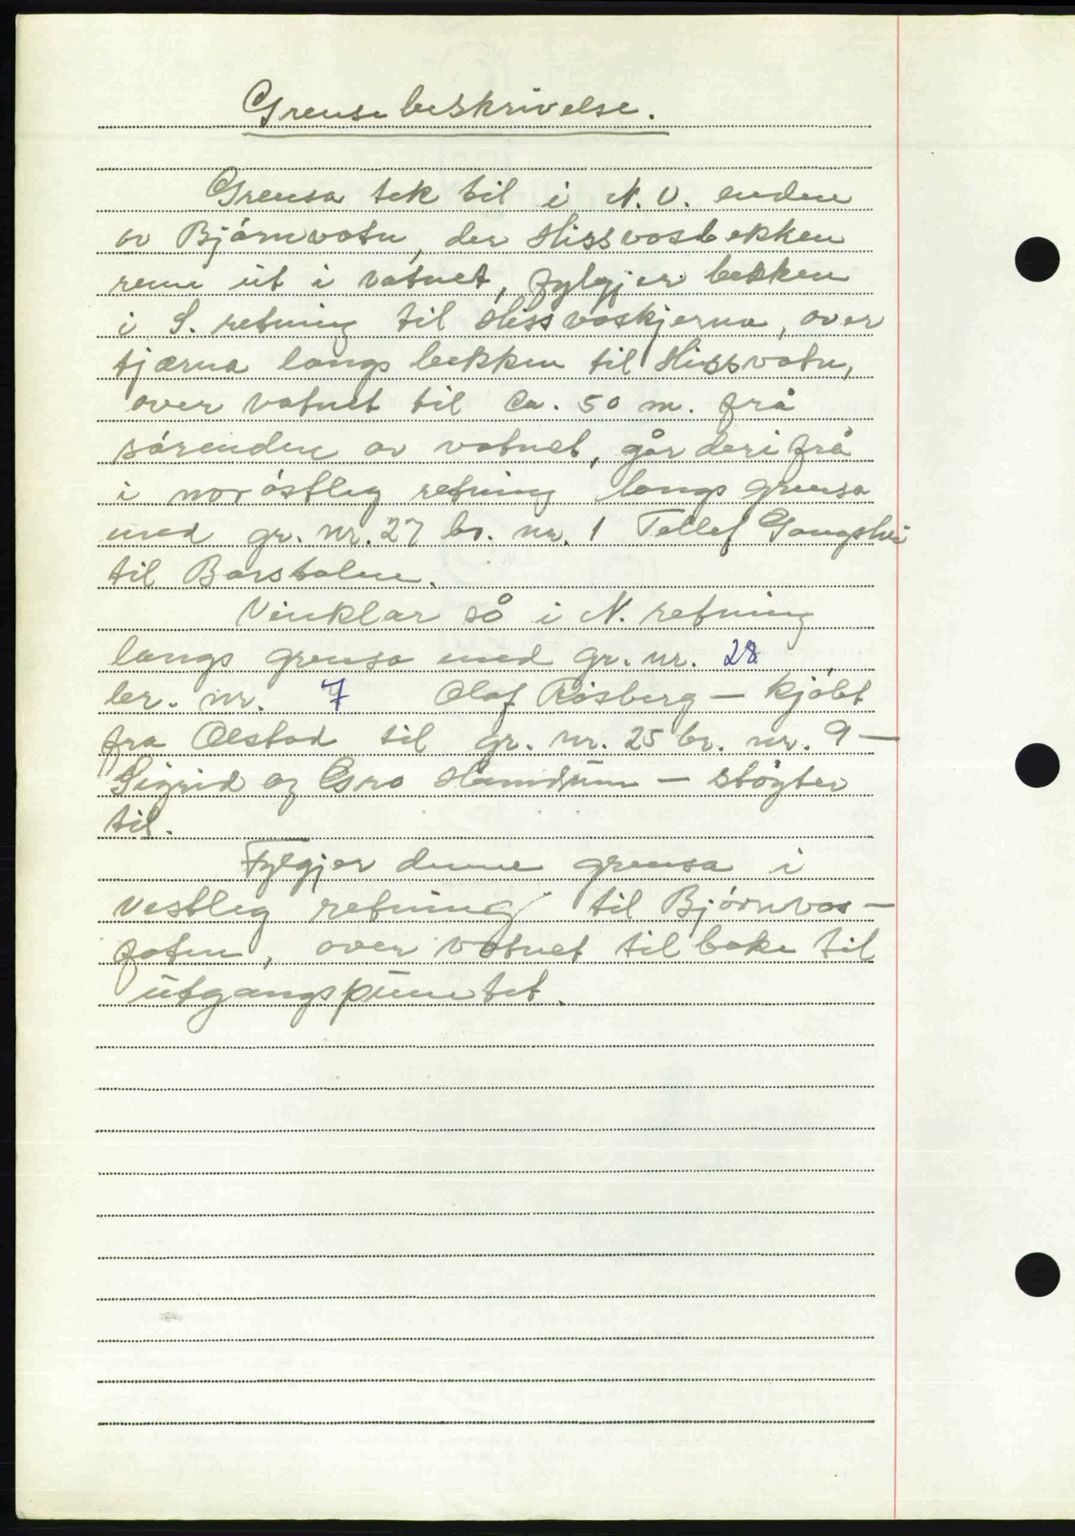 Grensebeskrivelse.
Grensa tek til i N.V. enden
av Bjørnvatn, der Hissvasbekken
renn ut i vatnet, fylgjer bekken
i S. retning til Hissvaskjerna, over
tjærna langs bekken til Hissvatn,
over vatnet til ca. 50 m. frå
sørenden av vatnet, går derifrå
i norøstleg retning langs grensa
med gr. nr. 27 br. nr. 1 Tellef
til Barstolen.
Vinklar så i N. retning
langs grensa med gr. nr. 28
br. nr. 7 Olaf Røsberg — kjøbt
fra Ølstad til gr. nr. 25 br. nr. 9 —
Sigrid og — støyter
til.
Fylgjer denne grensa i
vestleg retning til Bjørnvas-
foten, over vatnet tilbake til
utgangspunctet.